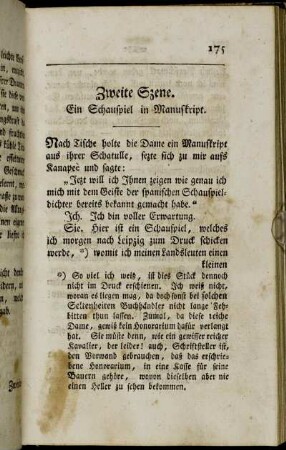 175
Zweite Szene.
Ein Schauspiel in Manuskript.
Nach Tische holte die Dame ein Manuskript
aus ihrer Schatulle, sezte sich zu mir aufs
Kanapee und sagte:
„Jezt will ich Ihnen zeigen wie genau ich
mich mit dem Geiste der spanischen Schauspiel-
dichter bereits bekannt gemacht habe.“
Ich. Ich bin voller Erwartung.
Sie. Hier ist ein Schauspiel, welches
ich morgen nach Leipzig zum Druck schicken
werde, *) womit ich meinen Landsleuten einen
kleinen
*) So viel ich weiß, ist dies Stück dennoch
nicht im Druck erschienen. Ich weiß nicht,
woran es liegen mag, da doch sonst bei solchen
Seltenheiten Buchhändler nicht lange Fehl-
bitten thun lassen. Zumal, da diese reiche
Dame, gewiß kein Honorarium dafür verlangt
hat. Sie müste denn, wie ein gewisser reicher
Kavalier, der leider! auch, Schriftsteller ist,
den Vorwand gebrauchen, daß das erschrie-
bene Honorarium, in eine Kasse für seine
Bauern gehöre, wovon dieselben aber nie
einen Heller zu sehen bekommen.